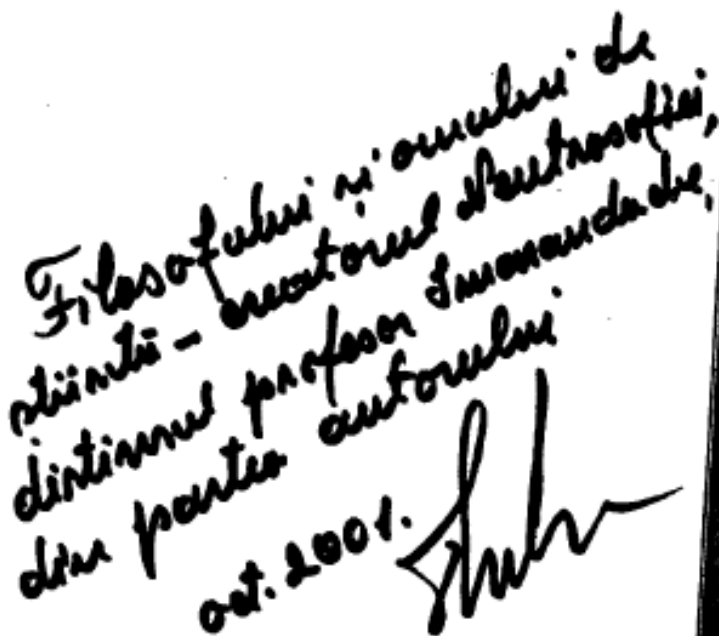 Filosofului și omului de
științii - creatorul Neutrosofiei,
distinsul profesor Smarandache,
din partea autorului
oct. 2001.